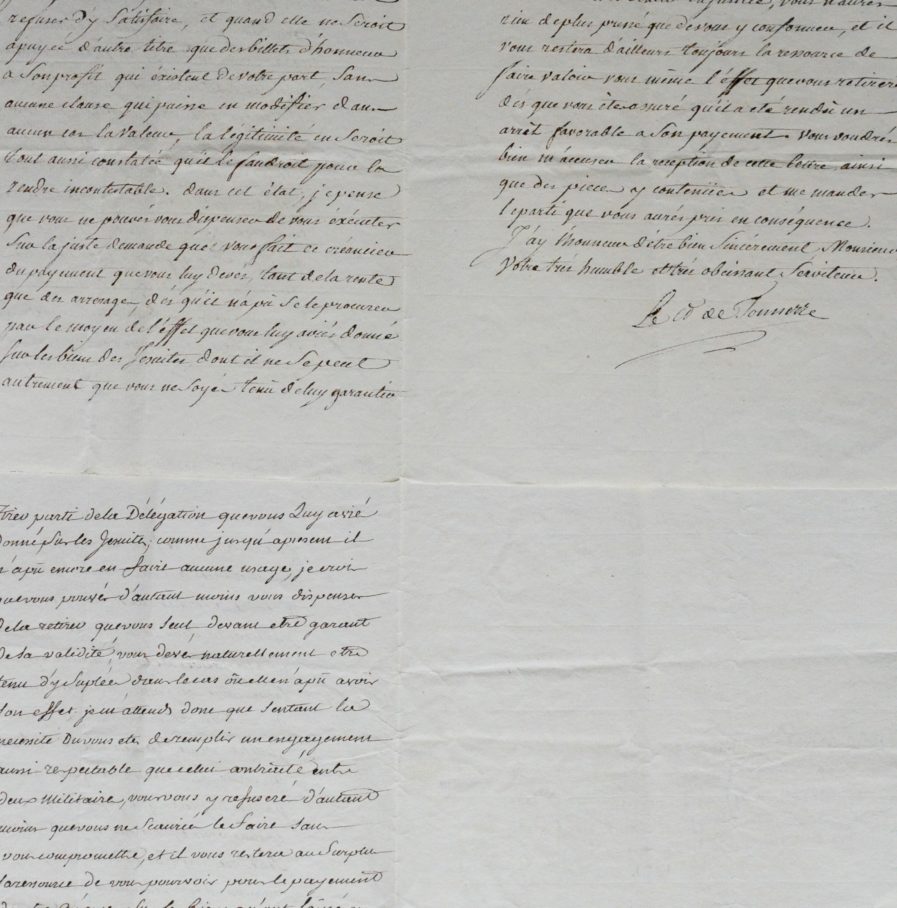 refuser d'y satisfaire, et quand elle ne seroit
apuyée d'autre titre que des billets d'honneur
a son profit qui éxistent de votre part sans
aucune clause qui puisse en modifier dans
aucun cas la valeur, la légitimité en seroit
tout aussi constatée qu'il le faudroit pour la
rendre incontestable. dans cet état, je pense
que vous ne pouvés vous dispenser de vous éxécuter
sur la juste demande que vous fait ce creancier
du payement que vous luy devés, tant de la rente
que des arrerages, dés qu'il n'a pû se le procurer
par le moyen de l'effet que vous luy aviés donné
sur les biens des Jesuites dont il ne se peut
autrement que vous ne soyés tenû de luy garantir
tirer parti de la Délégation que vous Luy avié
donné sur les Jesuites, comme jusqu'apresent il
n'a pû encore en faire aucune usage, je crois
que vous pouvés d'autant moins vous dispenser
de la retirer que vous seul devant etre garant
de sa validité, vous devé naturellement etre
tenu d'y supléer dans le cas où elle n'a pû avoir
son effet. j'en attends donc que sentant la
necessité de remplir un engagement
aussi respectable que celui contracté entre
deux militaire, vous vous y refuseré d'autant
moins que vous ne scauriés le faire sans
vous compromettre, et il vous restera au surplus
la ressource de vous pourvoir pour le payement
vous n'aures
rien de plus pressé que de vous y conformer, et il
vous restera d'ailleurs toujours la ressource de
faire valoir vous même l'effet que vous retirerez
dés que vous étes assuré qu'il a eté rendû un
arrêt favorable a son payement. Vous voudrés
bien m'accuser la réception de cette lettre, ainsi
que des pieces y contenües et me mander
le parti que vous aurés pris en conséquence.
J'ay l'honneur d'être bien sincérement, Monsieur
Votre trés humble et trés obeissant Serviteur.
Le de Tonnerre